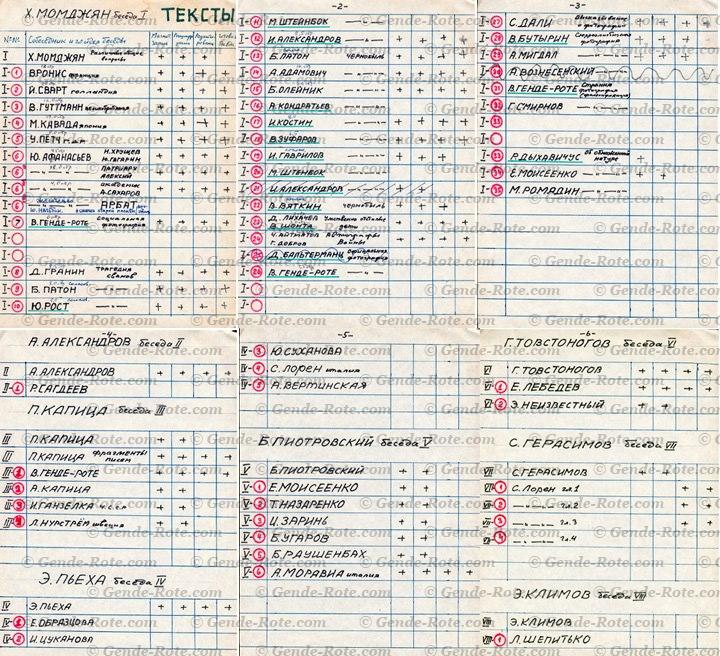 Х. МОМДЖЯН беседа I ТЕКСТЫ
№№ Собеседник и глава беседы
I Х. МОМДЖЯН
I-① В. РОНИС франция
I-② И. СВАРТ голландия
I-③ В. ГУТТМАНН
I-④ М. КАВАДА япония
I-⑤ У. ПЁТЧ г.д.р
I-⑥ Ю. АФАНАСЬЕВ Н. ХРУЩЕВ Ю. ГАГАРИН
ПАТРИАРХ АЛЕКСИЙ
академик А. САХАРОВ
АРБАТ
I-⑦ В. ГЕНДЕ-РОТЕ социальная фотография
I-
I-
I-⑧ Д. ГРАНИН трагедия
I-⑨ Б. ПАТОН
I-⑩ Ю. РОСТ
-2-
I-⑪ М. ШТЕЙНБОК
I-⑫ И. АЛЕКСАНДРОВ
I-⑬ Б. ПАТОН чернобыль
I-⑭ А. АДАМОВИЧ
I-⑮ Б. ОЛЕЙНИК
I-⑯ А. КОНДРАТЬЕВ
I-⑰ И. КОСТИН
I-⑱ В. ЗУФАРОВ
I-⑲ И. ГАВРИЛОВ
I-⑳ М. ШТЕНБОК
I-㉑ И. АЛЕКСАНДРОВ
I-㉒ В. ВЯТКИН чернобыль
I-㉓ Д. ЛИХАЧЕВ
В. ШОНТА дети
I-㉔ Ч. АЙТМАТОВ
Г. БОБРОВ Войны
I-㉕ Д. БАЛЬТЕРМАНЦ фотография
I-㉖ В. ГЕНДЕ-РОТЕ
I-
I-
-3-
I-㉗ С. ДАЛИ о фотографии
I-㉘ В. БУТЫРИН фотография
I-㉙ А. МИГДАЛ
I-㉚ А. ВОЗНЕСЕНСКИЙ
I-㉛ В. ГЕНДЕ-РОТЕ
I-㉜ Г. СМИРНОВ
I-
I-
I-㉝ Р. ДЫХАВИЧУС Об обнаженной натуре
I-㉞ Е. МОИСЕЕНКО
I-㉟ М. РОМАДИН
-4-
А. АЛЕКСАНДРОВ беседа II
II А. АЛЕКСАНДРОВ
II-① Р. САГДЕЕВ
П. КАПИЦА беседа III
III П. КАПИЦА
III П. КАПИЦА фрагменты писем
III-① В. ГЕНДЕ-РОТЕ
III-② А. КАПИЦА
III-③ И. ГАНЗЕЛКА ч.с.с.р
III-④ Л. НУРСТРЁМ швеция
Э. ПЬЕХА беседа IV
IV Э. ПЬЕХА
IV-① Е. ОБРАЗЦОВА
IV-② И. ЦУКАНОВА
-5-
IV-③ Ю. СУХАНОВА
IV-④ С. ЛОРЕН италия
IV-⑤ А. ВЕРТИНСКАЯ
Б. ПИОТРОВСКИЙ беседа V
V Б. ПИОТРОВСКИЙ
V-① Е. МОИСЕЕНКО
V-② Т. НАЗАРЕНКО
V-③ И. ЗАРИНЬ
V-④ Б. УГАРОВ
V-⑤ Б. РАУШЕНБАХ
V-⑥ А. МОРАВИА италия
-6-
Г. ТОВСТОНОГОВ беседа VI
VI Г. ТОВСТОНОГОВ
VI-① Е. ЛЕБЕДЕВ
VI-② Э. НЕИЗВЕСТНЫЙ
С. ГЕРАСИМОВ беседа VII
VII С. ГЕРАСИМОВ
VII-① С. ЛОРЕН гл. 1
VII-② гл. 2
VII-③ гл. 3
VII-④ гл. 4
Э. КЛИМОВ беседа VIII
VIII Э. КЛИМОВ
VIII-① Л. ШЕПИТЬКО
© Gende-Rote.com